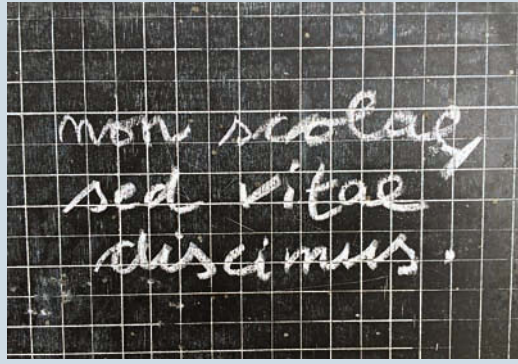 non scolae,
sed vitae
discimus.